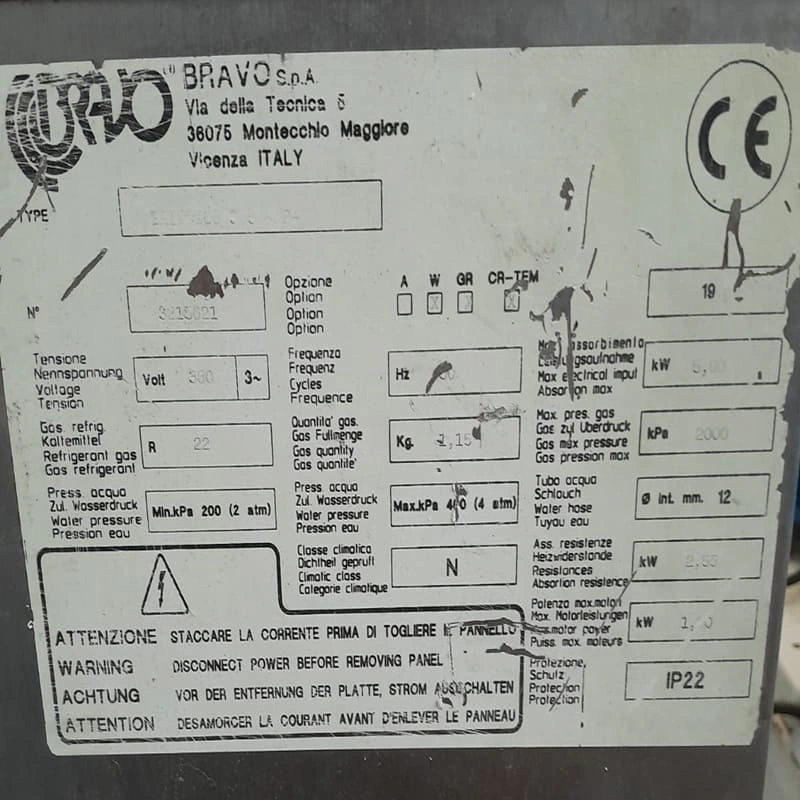 BRAVO
BRAVO S.p.A.
Via della Tecnica 5
36075 Montecchio Maggiore
Vicenza ITALY
CE
TYPE
N°
3215621
Opzione
Option
Option
Option
A W GR CR-TEM
X X X
19
Tensione
Nennspannung
Voltage
Tension
Volt 380 3~
Frequenza
Frequenz
Cycles
Frequence
Hz
Max assorbimento
Leistungsaufnahme
Max electrical imput
Absorbtion max
kW
Gas. refrig.
Kaltemittel
Refrigerant gas
Gas refrigerant
R 22
Quantita' gas.
Gas Fullmenge
Gas quantity
Gas quantite'
Kg. 1,15
Max. pres. gas
Gas zul Uberdruck
Gas max pressure
Gas pression max
kPa 2000
Press. acqua
Zul. Wasserdruck
Water pressure
Pression eau
Min.kPa 200 (2 atm)
Press. acqua
Zul. Wasserdruck
Water pressure
Pression eau
Max.kPa 400 (4 atm)
Tubo acqua
Schlauch
Water hose
Tuyau eau
Ø int. mm. 12
Classe climatica
Dichtheil gepruft
Climatic class
Categorie climatique
N
Ass. resistenze
Heizwiderstande
Resistances
Absortion resistence
kW 2,55
Potenza max.motori
Max. Motorleistungen
motor power
Puiss. max. moteurs
kW
Protezione,
Schutz
Protection
Protection
IP22
ATTENZIONE STACCARE LA CORRENTE PRIMA DI TOGLIERE IL PANNELLO
WARNING DISCONNECT POWER BEFORE REMOVING PANEL
ACHTUNG VOR DER ENTFERNUNG DER PLATTE, STROM AUSSCHALTEN
ATTENTION DESAMORCER LA COURANT AVANT D'ENLEVER LE PANNEAU